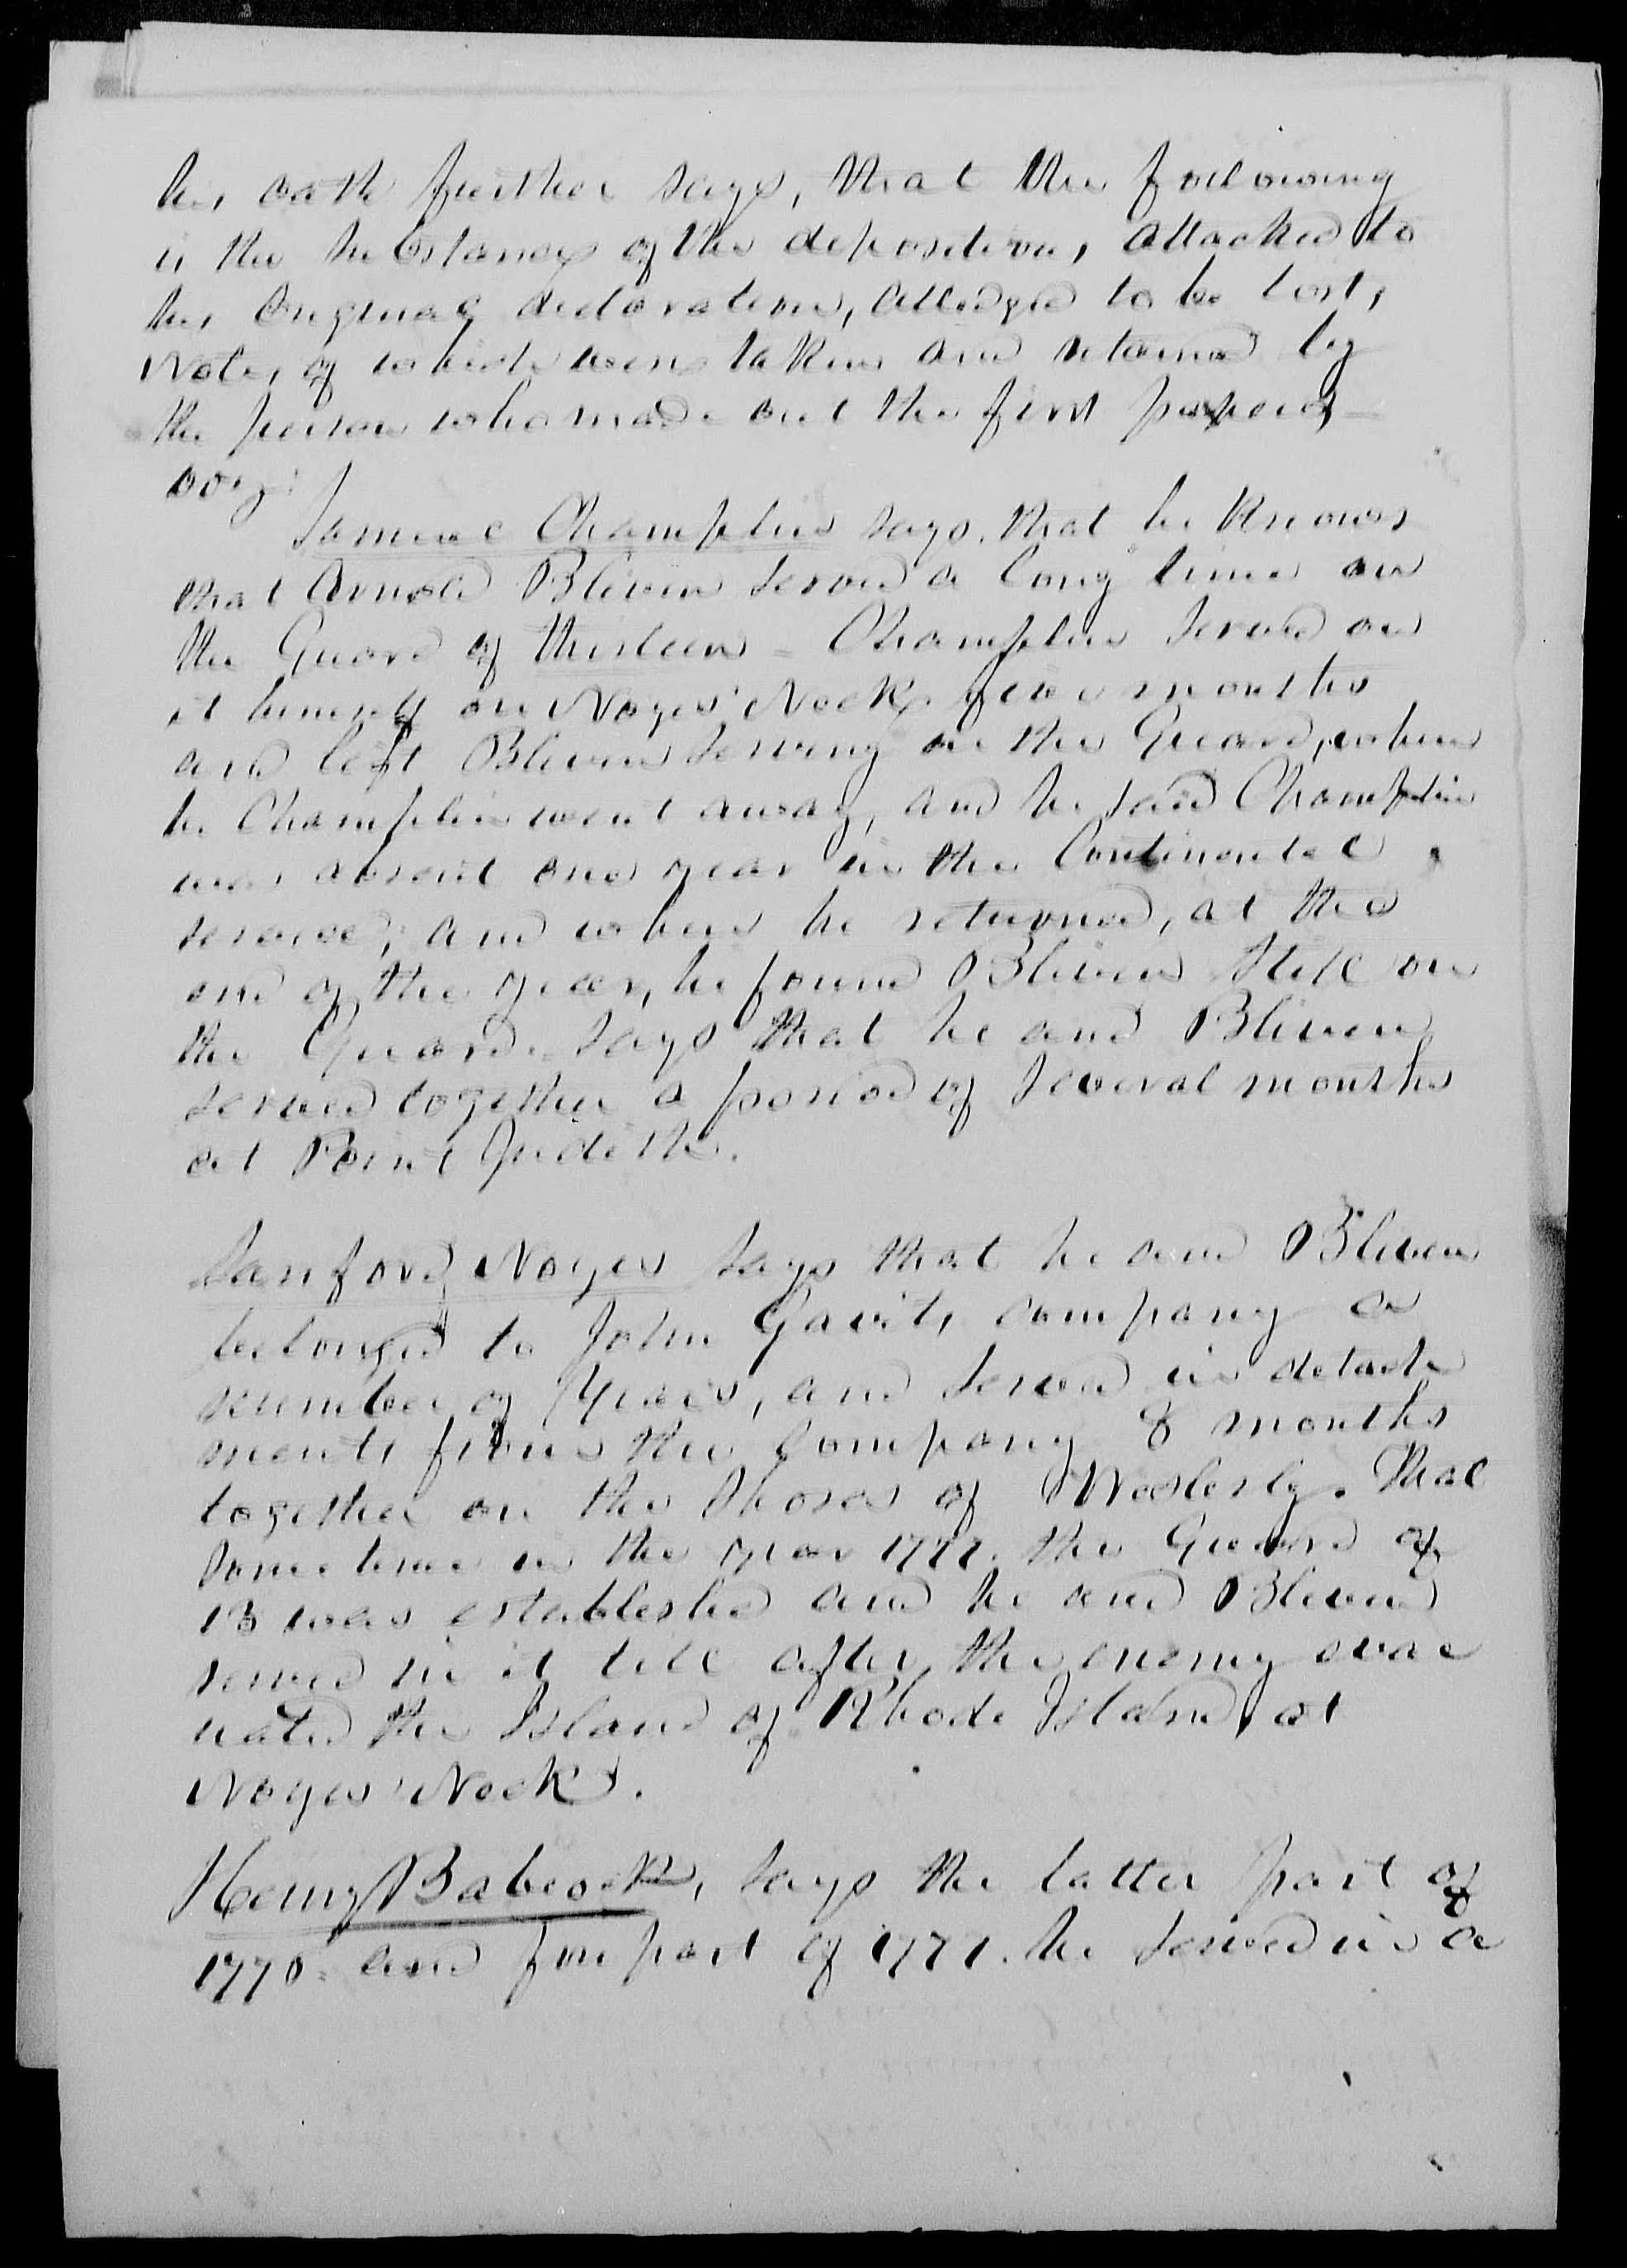 his oath further says, that the following
is the substance of the depositions, attached to
his original declaration, alledged to be lost,
Notes of which were taken and retained by
the person who made out the first papers,
viz:
Samuel Champlin says, that he knows
that Arnold Bliven served a long time on
the Guard of thirteen - Champlin served on
it himself on Noyes' Neck five months
and left Bliven serving on the Guard, when
he Champlin went away, and he said Champlin
was absent one year in the Continental
service, and when he returned, at the
end of the year, he found Bliven still on
the Guard. Says that he and Bliven
served together a period of several months
at Point Judith.
Sanford Noyes says that he and Bliven
belonged to John Gavits company a
number of Years, and served in detach
ments from the Company 8 months
together on the Shores of Westerly. That
some time in the year 1777. the Guard of
13 was established and he and Bliven
served in it till after the enemy evac
uated the Island of Rhode Island, at
Noyes' Neck.
Henry Babcock, says the latter part of
1776 and fore part of 1777. he served in a